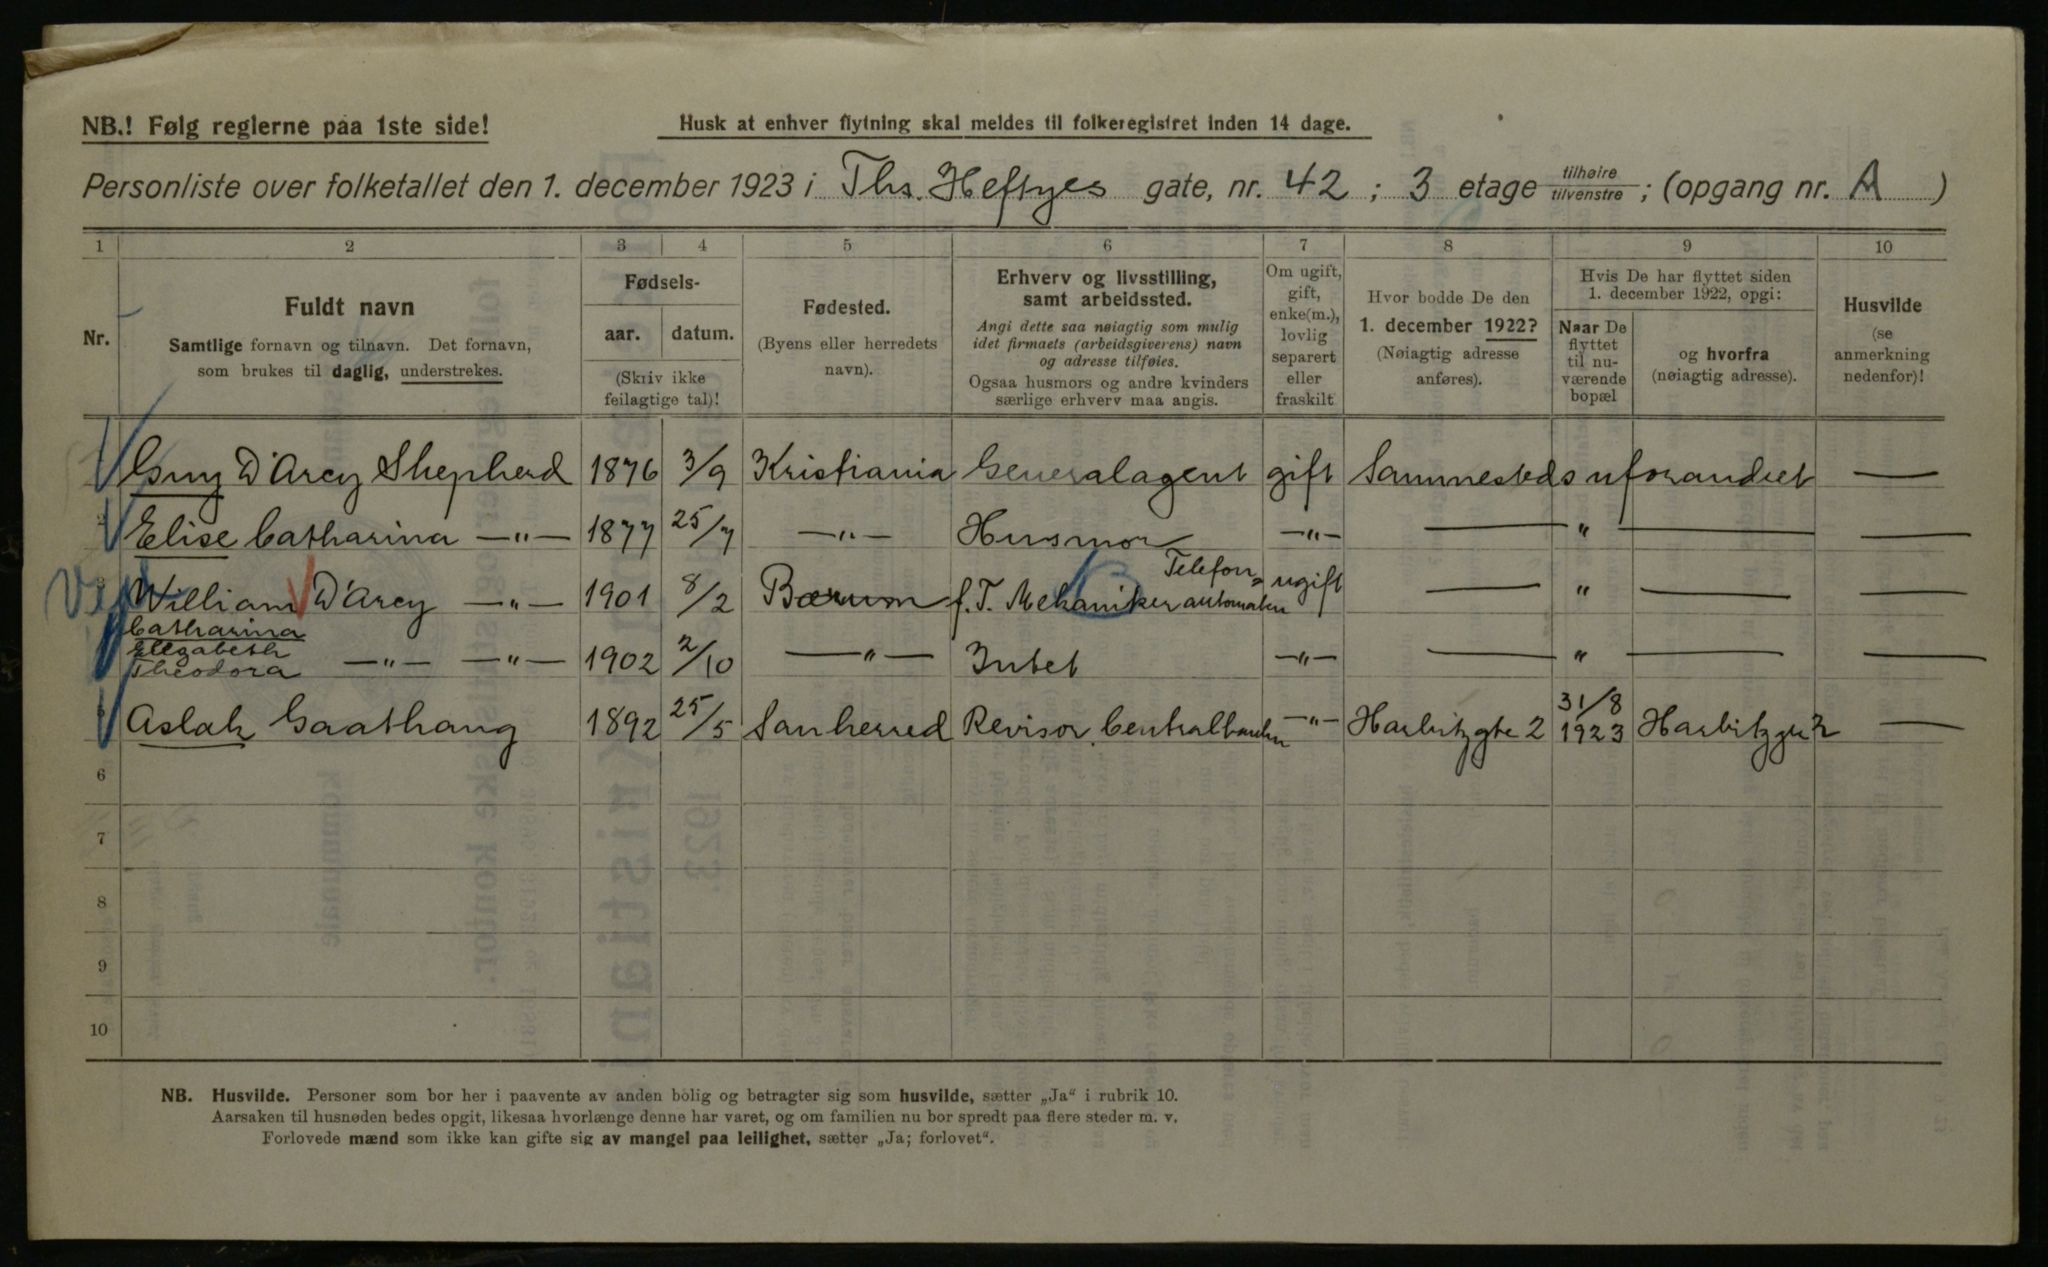 NB.! Følg reglerne paa 1ste side!
Husk at enhver flytning skal meldes til folkeregistret inden 14 dage.
Personliste over folketallet den 1. december 1923 i Ths. Heftyes gate, nr. 42 ; 3 etage tilhøire tilvenstre ; (opgang nr. A )
1 2 3 4 5 6 7 8 9 10
Nr.
Fuldt navn
Samtlige fornavn og tilnavn. Det fornavn,
som brukes til daglig, understrekes.
Fødsels-
aar. datum.
(Skriv ikke
feilagtige tal)!
Fødested.
(Byens eller herredets
navn).
Erhverv og livsstilling,
samt arbeidssted.
Angi dette saa nøiagtig som mulig
idet firmaets (arbeidsgiverens) navn
og adresse tilføies.
Ogsaa husmors og andre kvinders
særlige erhverv maa angis.
Om ugift,
gift,
enke(m.),
lovlig
separert
eller
fraskilt
Hvor bodde De den
1. december 1922?
(Nøiagtig adresse
anføres).
Hvis De har flyttet siden
1. december 1922, opgi:
Naar De
flyttet
til nu-
værende
bopæl
og hvorfra
(nøiagtig adresse).
Husvilde
(se
anmerkning
nedenfor)!
Guy D'Arcy Shepherd 1876 3/9 Kristiania Generalagent gift Sammesteds uforandret —
Elise Catharina —"— 1877 25/7 —"— Husmor —"— — " — —
William D'Arcy —"— 1901 8/2 Bærum f. T. Mekaniker Telefon= automaten ugift — " — —
Catharina
Elizabeth
Theodora —"— —"— 1902 2/10 —"— Intet —"— — " — —
Aslak Gaathaug 1892 25/5 Sanherred Revisor Centralbanken —"— Harbitzgte 2 31/8 1923 Harbitzgt 2 —
6
7
8
9
10
NB. Husvilde. Personer som bor her i paavente av anden bolig og betragter sig som husvilde, sætter „Ja“ i rubrik 10.
Aarsaken til husnøden bedes opgit, likesaa hvorlænge denne har varet, og om familien nu bor spredt paa flere steder m. v.
Forlovede mænd som ikke kan gifte sig av mangel paa leilighet, sætter „Ja; forlovet“.